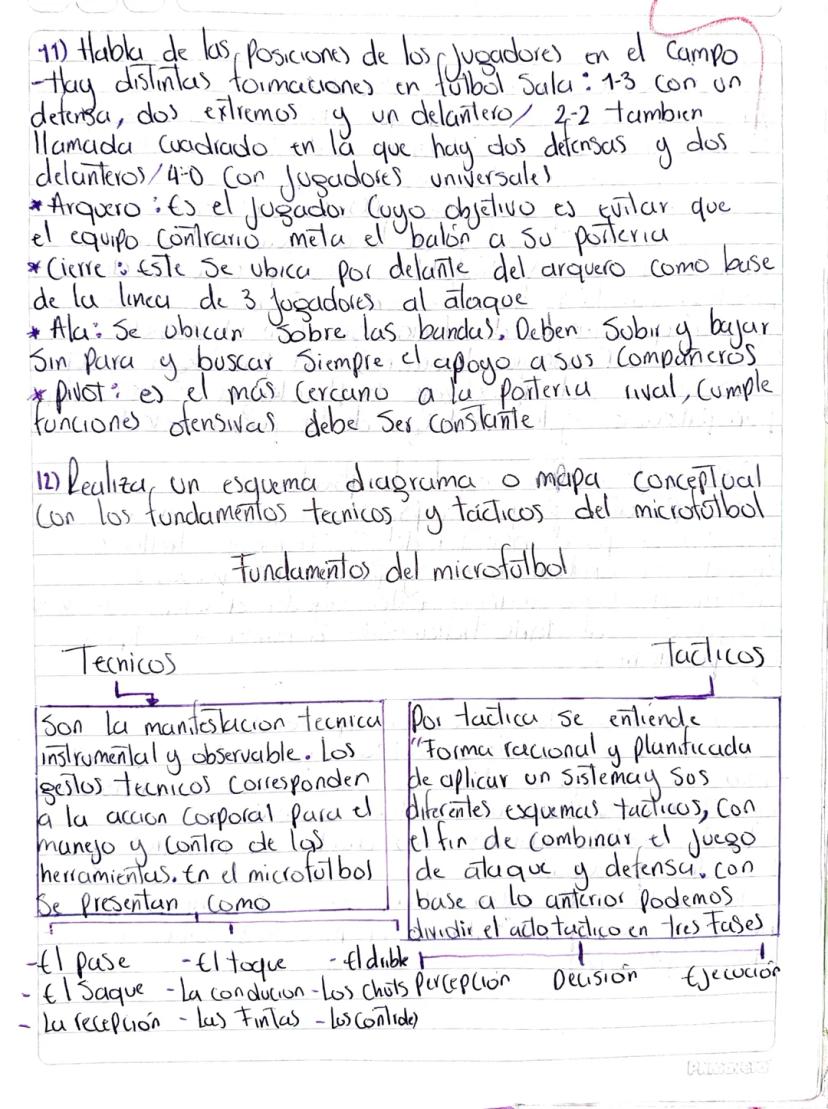 11) Habla de las posiciones de los Jugadores en el Campo
-Hay distintas formaciones en futbol Sala: 1-3 con un
defensa, dos extremos y un delantero/ 2-2 tambien
llamada Cuadrado en la que hay dos defensas y dos
delanteros/4-0 Con Jugadores universales
* Arquero: Es el Jugador Cuyo objetivo es evitar que
el equipo Contrario meta el balón a Su porteria
* Cierre: Este Se ubica por delante del arquero como base
de la linea de 3 Jugadores al ataque
* Ala: Se ubican Sobre las bandas. Deben Subir y bajar
Sin Para y buscar Siempre el apoyo a sus Compañeros
* Pivot: es el más Cercano a la Porteria rival, Cumple
funciones ofensivas debe Ser Constante
12) Realiza un esquema diagrama o mapa conceptual
Con los fundamentos tecnicos y tácticos del microfutbol
Fundamentos del microfutbol
Tecnicos
Tacticos
Son la manifestacion tecnica
instrumental y observable. Los
gestos tecnicos Corresponden
a la accion Corporal para el
manejo y Contro de las
herramientas. En el microfutbol
Se presentan como
Por tactica Se entiende
"Forma racional y planificada
de aplicar un Sistema y Sus
diferentes esquemas tacticos, Con
el fin de Combinar el Juego
de ataque y defensa. con
base a lo anterior Podemos
dividir el acto tactico en tres Fases
-El pase -El toque -El drible
- El Saque -La conducion -Los chuts
- La recepción - Las Fintas - Los Controles
Percepcion Decisión Ejecución